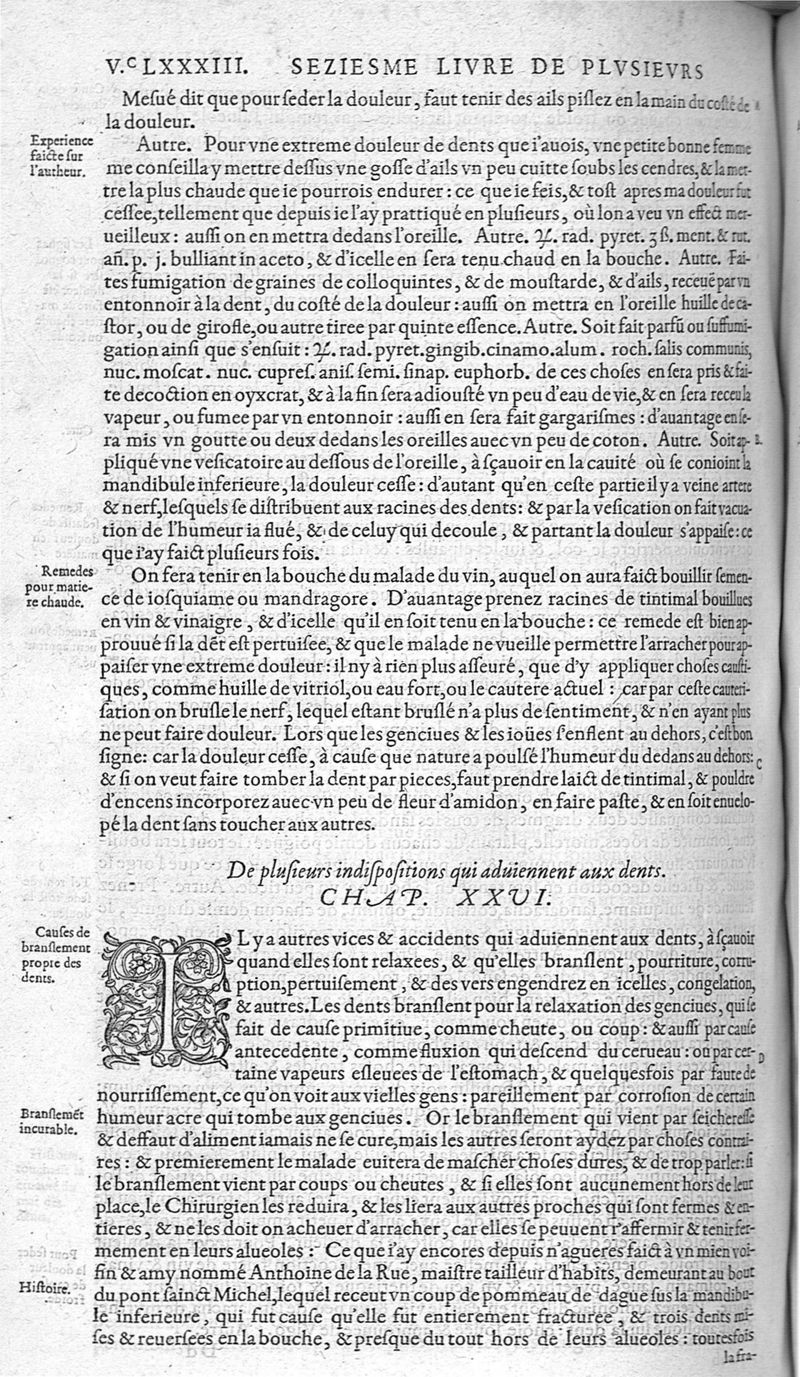 V.C LXXXIII. SEZIESME LIVRE DE PLVSIEVRS
Mesué dit que pour seder la douleur, faut tenir des ails pissez en la main du costé de
la douleur.
Experience
faicte sur
l'autheur.
Autre. Pour vne extreme douleur de dents que i'auois, vne petite bonne femme
me conseilla y mettre dessus vne gosse d'ails vn peu cuitte soubs les cendres, & la met-
tre la plus chaude que ie pourrois endurer: ce que ie feis, & tost apres ma douleur fut
cessee, tellement que depuis ie l'ay prattiqué en plusieurs, où lon a veu vn effect mer-
ueilleux: aussi on en mettra dedans l'oreille. Autre. ℞. rad. pyret. ʒ ß. ment. & rut.
añ. p. j. bulliant in aceto, & d'icelle en sera tenu chaud en la bouche. Autre. Fai-
tes fumigation de graines de colloquintes, & de moustarde, & d'ails, receuë par vn
entonnoir à la dent, du costé de la douleur: aussi on mettra en l'oreille huille de ca-
stor, ou de girofle, ou autre tiree par quinte essence. Autre. Soit fait parfū ou suffumi-
gation ainsi que s'ensuit: ℞. rad. pyret. gingib. cinamo. alum. roch. salis communis,
nuc. moscat. nuc. cupres. anis. semi. sinap. euphorb. de ces choses en sera pris & fai-
te decoction en oyxcrat, & à la fin sera adiousté vn peu d'eau de vie, & en sera receu la
vapeur, ou fumee par vn entonnoir: aussi en sera fait gargarismes: d'auantage en se-
ra mis vn goutte ou deux dedans les oreilles auec vn peu de coton. Autre. Soit ap-
pliqué vne vesicatoire au dessous de l'oreille, à sçauoir en la cauité où se conioint la
mandibule inferieure, la douleur cesse: d'autant qu'en ceste partie il y a veine artere
& nerf, lesquels se distribuent aux racines des dents: & par la vesication on fait vacua-
tion de l'humeur ia flué, & de celuy qui decoule, & partant la douleur s'appaise: ce
que i'ay faict plusieurs fois.
Remedes
pour matie-
re chaude.
On fera tenir en la bouche du malade du vin, auquel on aura faict bouillir semen-
ce de iosquiame ou mandragore. D'auantage prenez racines de tintimal bouillues
en vin & vinaigre, & d'icelle qu'il en soit tenu en la bouche: ce remede est bien ap-
prouué si la dēt est pertuisee, & que le malade ne vueille permettre l'arracher pour ap-
paiser vne extreme douleur: il ny à rien plus asseuré, que d'y appliquer choses causti-
ques, comme huille de vitriol, ou eau fort, ou le cautere actuel: car par ceste cauteri-
sation on brusle le nerf, lequel estant bruslé n'a plus de sentiment, & n'en ayant plus
ne peut faire douleur. Lors que les genciues & les ioües s'enflent au dehors, c'est bon
signe: car la douleur cesse, à cause que nature a poulsé l'humeur du dedans au dehors:
& si on veut faire tomber la dent par pieces, faut prendre laict de tintimal, & pouldre
d'encens incorporez auec vn peu de fleur d'amidon, en faire paste, & en soit enuelo-
pé la dent sans toucher aux autres.
De plusieurs indispositions qui aduiennent aux dents.
CHAP. XXVI.
Causes de
branslement
propre des
dents.
IL y a autres vices & accidents qui aduiennent aux dents, à sçauoir
quand elles sont relaxees, & qu'elles branslent, pourriture, corru-
ption, pertuisement, & des vers engendrez en icelles, congelation,
& autres. Les dents branslent pour la relaxation des genciues, qui se
fait de cause primitiue, comme cheute, ou coup: & aussi par cause
antecedente, comme fluxion qui descend du cerueau: ou par cer-
taine vapeurs esleuees de l'estomach, & quelquesfois par faute de
nourrissement, ce qu'on voit aux vielles gens: pareillement par corrosion de certain
Branslemēt
incurable.
humeur acre qui tombe aux genciues. Or le branslement qui vient par seicheresse
& deffaut d'aliment iamais ne se cure, mais les autres seront aydez par choses contrai-
res: & premierement le malade euitera de mascher choses dures, & de trop parler: si
le branslement vient par coups ou cheutes, & si elles sont aucunement hors de leur
place, le Chirurgien les reduira, & les liera aux autres proches qui sont fermes & en-
tieres, & ne les doit on acheuer d'arracher, car elles se peuuent r'affermir & tenir fer-
mement en leurs alueoles: Ce que i'ay encores depuis n'agueres faict à vn mien voi-
Histoire.
sin & amy nommé Anthoine de la Rue, maistre tailleur d'habits, demeurant au bout
du pont sainct Michel, lequel receut vn coup de pommeau de dague sus la mandibu-
le inferieure, qui fut cause qu'elle fut entierement fracturee, & trois dents mi-
ses & reuersees en la bouche, & presque du tout hors de leurs alueoles: toutesfois
la fra-